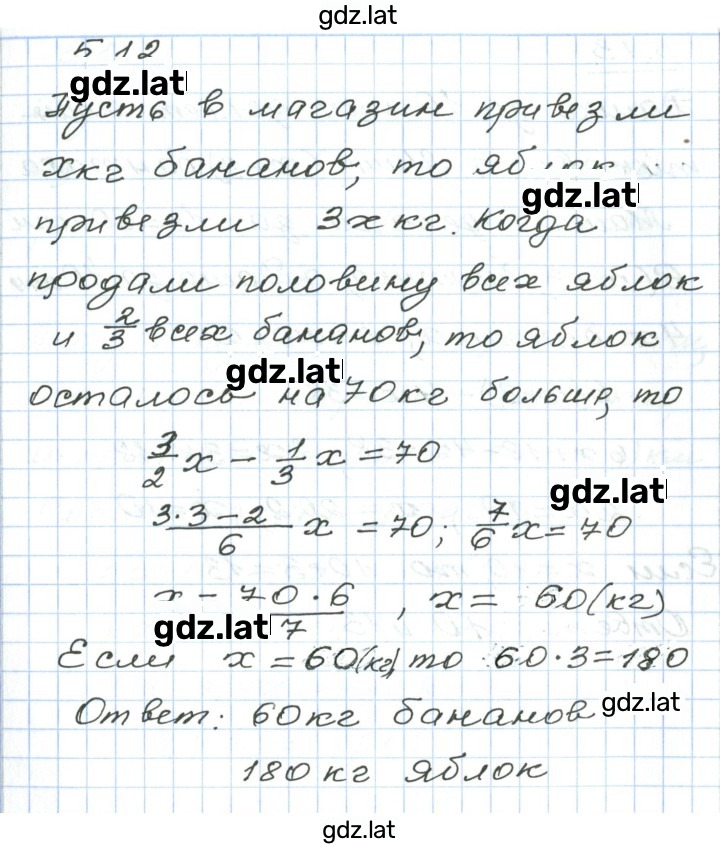 gdz.lat
512
gdz.lat
Пусть в магазин привезли
x кг бананов, то яблок
gdz.lat
привезли 3x кг. Когда
продали половину всех яблок
и 2/3 всех бананов, то яблок
gdz.lat
осталось на 70 кг больше, то
3/2 x - 1/3 x = 70
gdz.lat
(3·3-2)/6 x = 70; 7/6 x = 70
x = (70·6)/7, x = 60 (кг)
gdz.lat
Если x = 60 (кг), то 60·3=180
gdz.lat
Ответ: 60 кг бананов
180 кг яблок
gdz.lat